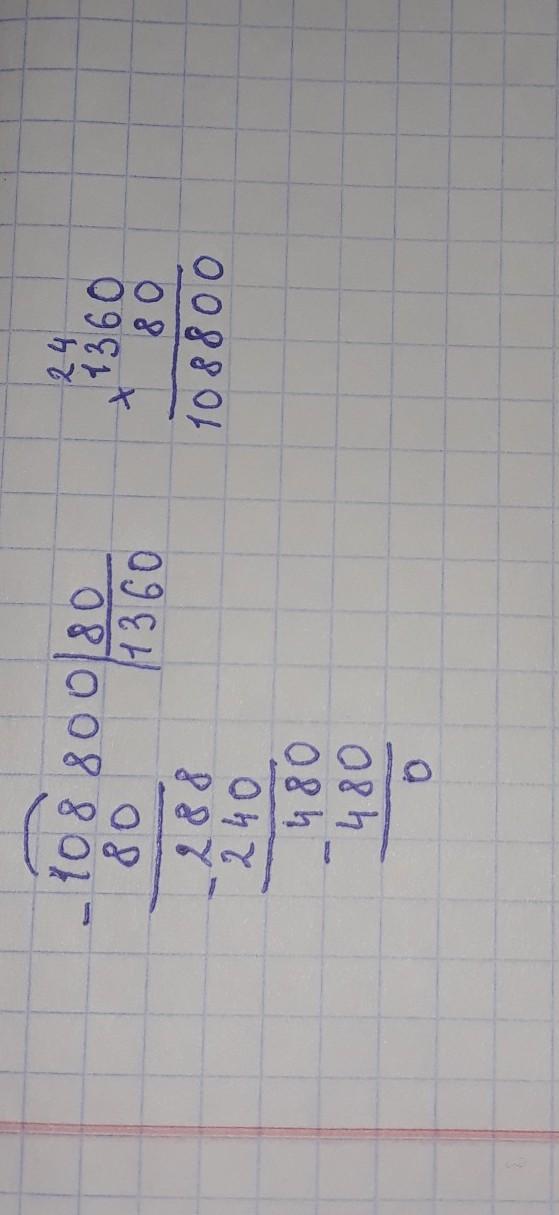 -108800|80
80 |1360
-288
240
-480
480
0
24
×1360
80
108800